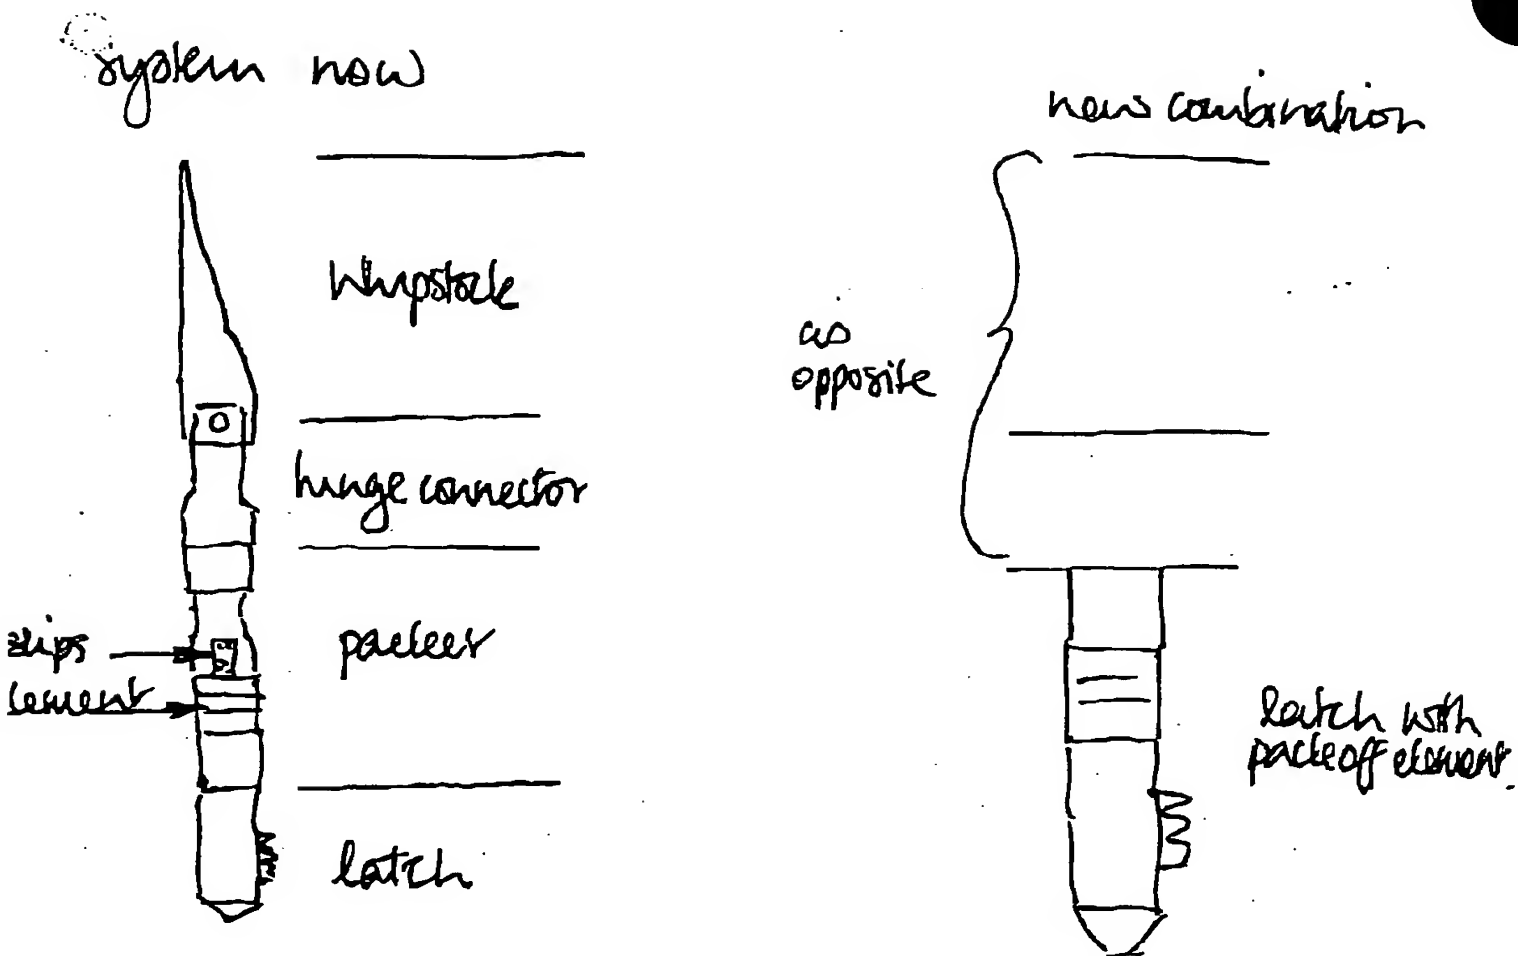 system now
Whipstock
hinge connector
packer
slips
element
latch
new combination
as
opposite
latch with
packeoff element.